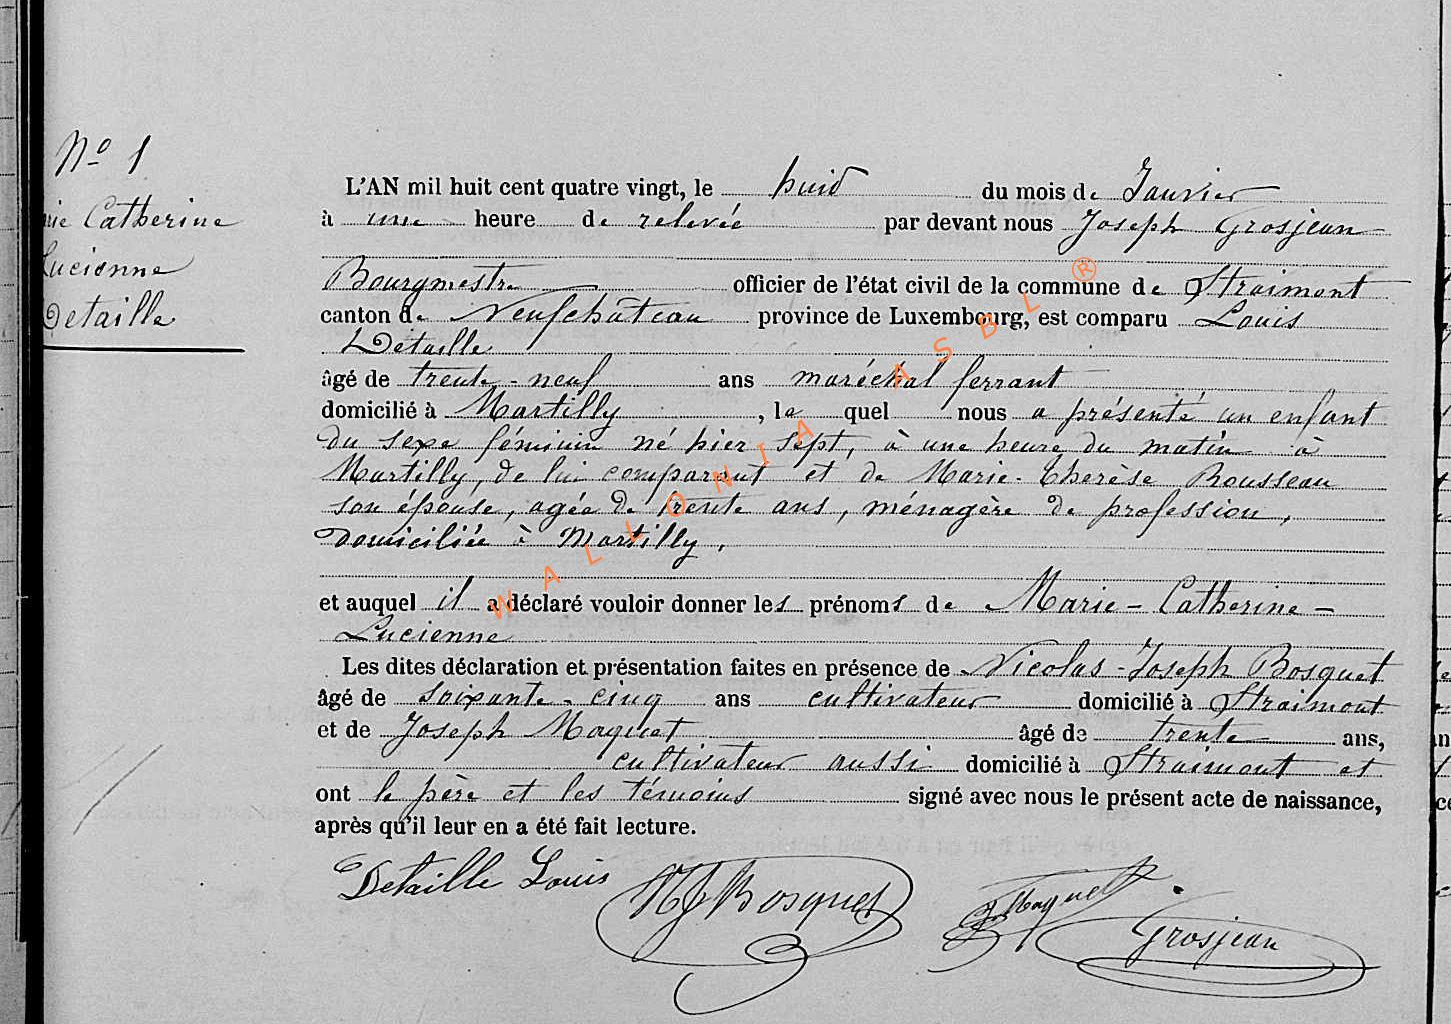 Nº 1
rie Catherine
Lucienne
Detaille
L'AN mil huit cent quatre vingt, le huid du mois de Janvier
à une heure de relevée par devant nous Joseph Grosjean
Bourgmestre officier de l'état civil de la commune de Straimont
canton de Neufchâteau province de Luxembourg, est comparu Louis
Détaille
âgé de trente-neuf ans maréchal ferrant
domicilié à Martilly, le quel nous a présenté un enfant
du sexe féminin né hier sept, à une heure du matin à
Martilly, de lui comparant et de Marie-Therèse Rousseau
son épouse, agée de trente ans, ménagère de profession,
domiciliée à Martilly,
et auquel il a déclaré vouloir donner les prénoms de Marie-Catherine-
Lucienne
Les dites déclaration et présentation faites en présence de Nicolas-Joseph Bosquet
âgé de soixante-cinq ans cultivateur domicilié à Straimont
et de Joseph Maquet âgé de trente ans,
cultivateur aussi domicilié à Straimont et
ont le père et les témoins signé avec nous le présent acte de naissance,
après qu'il leur en a été fait lecture.
Detaille Louis NJ Bosquet J Maquet
Grosjean
WALLONIA ASBL ®